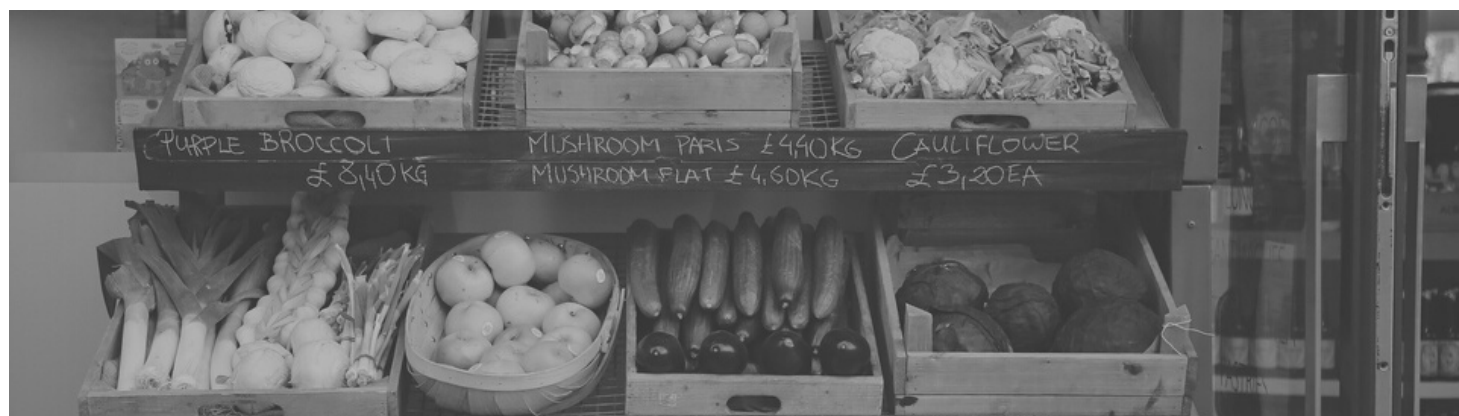 PURPLE BROCCOLI
£ 8,40KG
MUSHROOM PARIS £4,40KG
MUSHROOM FLAT £4,60KG
CAULIFLOWER
£3,20EA